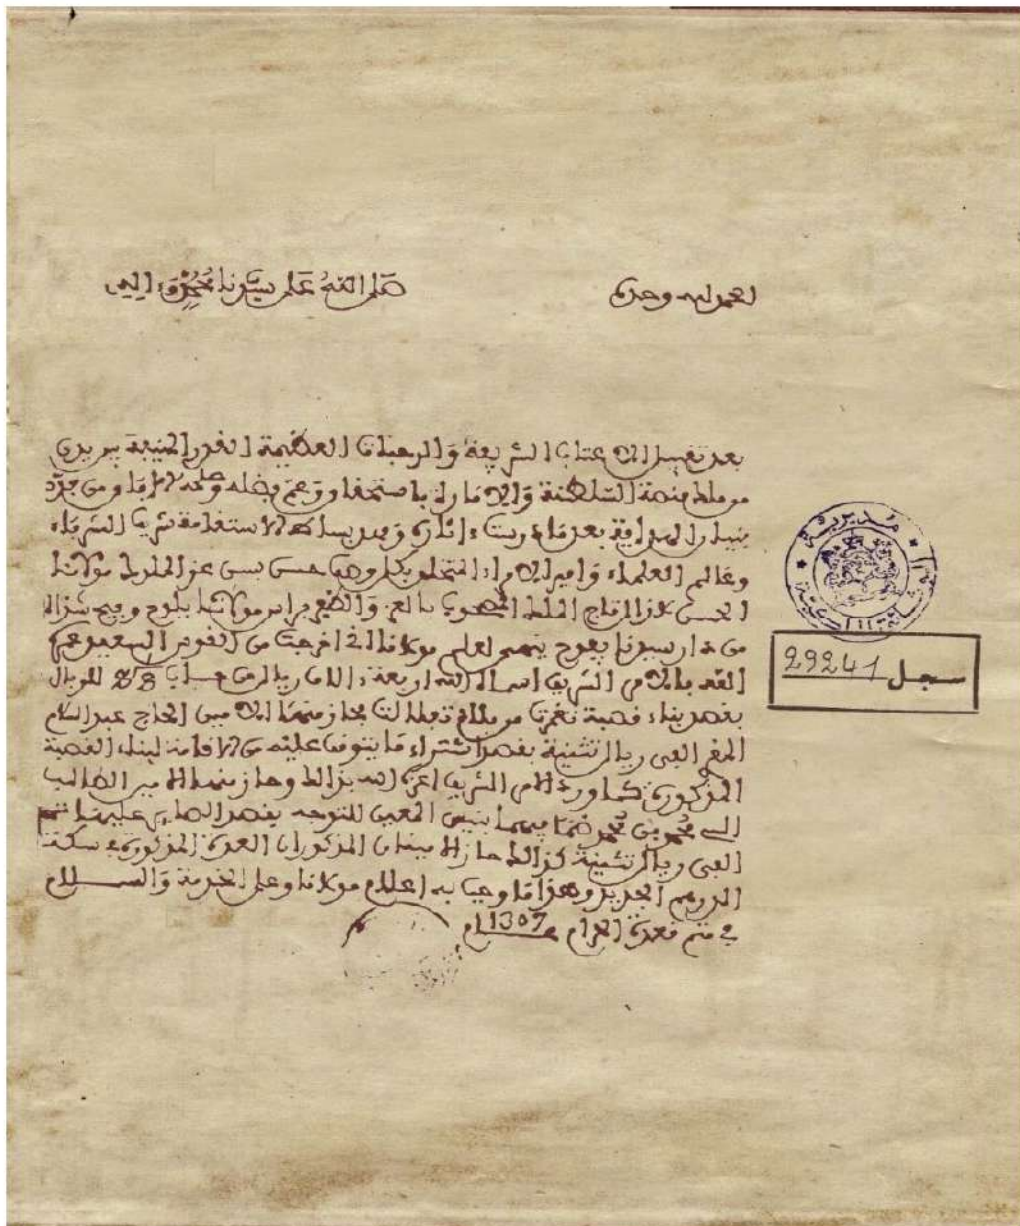 الحمد لله وحده
صلى الله على سيدنا محمد وءاله
بعد تقبيل الاعتاب الشريفة والرحبات العظيمة القدر المنيفة بيد من
من ملك منصة السلطنة والامارة باستحقاق وعم فضله
بعد وبساط الاستقامة شريف الشرفاء
وعالم العلماء وامير الامراء المتحلي بكل وصف حسن بسن عز الملوك مولانا
الحسن لازال تاج الملك بالعز والظفر مولانا يلوح
من دار سيدنا يفوح ينهى لعلم مولانا انى اخرجت من القوس السعيد عمره
الله بالامر الشريف اسماه الله اربعة ءالاف ريال من حساب للريال
بقصد بناء قصبة من بلاد حاز منها الامين الحاج عبد السلام
المقر الفى ريال تثنية بقصد اشتراء ما يتوقف عليه من الاقامة لبناء القصبة
المذكورة كما ورد الامر الشريف اعزه الله بذلك وحاز منها الامين الطالب
السيد محمد بن محمد المعين للتوجه بقصد الصاير عليها
الفى ريال تثنية كذلك حاز الامينان المذكوران العدة المذكورة في سكة
الدرهم الجديد وهذا ما وجب به اعلام مولانا وعلى الخدمة والسلام
في قعدة الحرام عام 1307
مديرية
سجل 29241